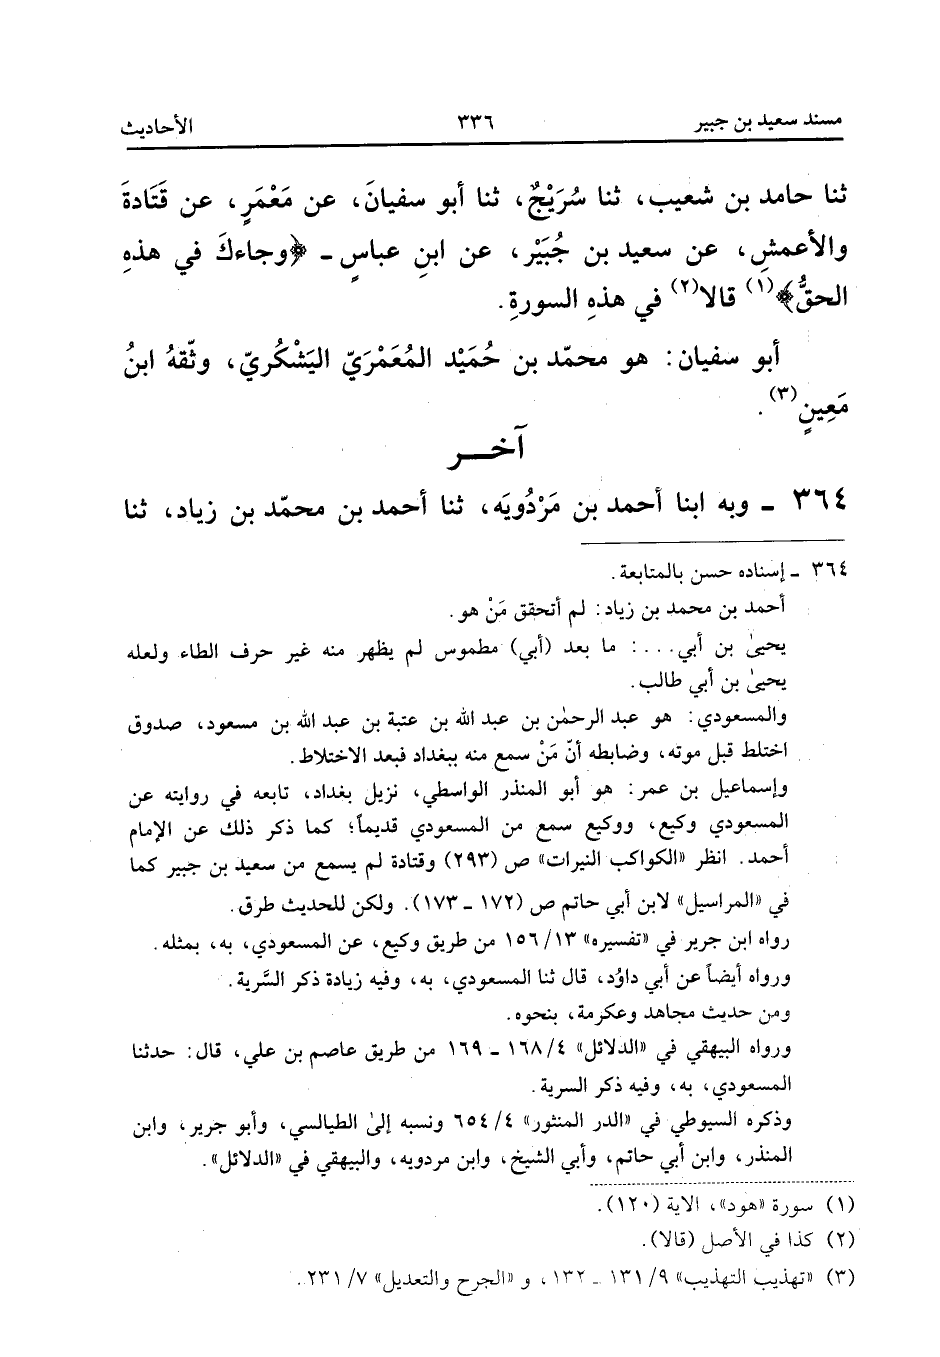 مسند سعيد بن جبير ٣٣٦ الأحاديث
ثنا حامد بن شعيب، ثنا سُرَيْجٌ، ثنا أبو سفيانَ، عن مَعْمَرٍ، عن قَتَادةَ
والأعمشِ، عن سعيد بن جُبَيْر، عن ابنِ عباسٍ ـ ﴿وجاءكَ في هذهِ
الحقُّ﴾(١) قالا(٢) في هذهِ السورةِ.
أبو سفيان: هو محمّد بن حُمَيْد المُعَمْرَيّ اليَشْكُريّ، وثّقهُ ابنُ
مَعِينٍ(٣).
آخـــر
٣٦٤ ـ وبه ابنا أحمد بن مَرْدُويَه، ثنا أحمد بن محمّد بن زياد، ثنا
٣٦٤ ـ إسناده حسن بالمتابعة.
أحمد بن محمد بن زياد: لم أتحقق مَنْ هو.
يحيىٰ بن أبي...: ما بعد (أبي) مطموس لم يظهر منه غير حرف الطاء ولعله
يحيىٰ بن أبي طالب.
والمسعودي: هو عبد الرحمٰن بن عبد الله بن عتبة بن عبد الله بن مسعود، صدوق
اختلط قبل موته، وضابطه أنّ مَنْ سمع منه ببغداد فبعد الاختلاط.
وإسماعيل بن عمر: هو أبو المنذر الواسطي، نزيل بغداد، تابعه في روايته عن
المسعودي وكيع، ووكيع سمع من المسعودي قديماً؛ كما ذكر ذلك عن الإمام
أحمد. انظر «الكواكب النيرات» ص (٢٩٣) وقتادة لم يسمع من سعيد بن جبير كما
في «المراسيل» لابن أبي حاتم ص (١٧٢ ـ ١٧٣). ولكن للحديث طرق.
رواه ابن جرير في «تفسيره» ١٣/ ١٥٦ من طريق وكيع، عن المسعودي، به، بمثله.
ورواه أيضاً عن أبي داوُد، قال ثنا المسعودي، به، وفيه زيادة ذكر السَّرية.
ومن حديث مجاهد وعكرمة، بنحوه.
ورواه البيهقي في «الدلائل» ٤/ ١٦٨ ـ ١٦٩ من طريق عاصم بن علي، قال: حدثنا
المسعودي، به، وفيه ذكر السرية.
وذكره السيوطي في «الدر المنثور» ٤/ ٦٥٤ ونسبه إلىٰ الطيالسي، وأبو جرير، وابن
المنذر، وابن أبي حاتم، وأبي الشيخ، وابن مردويه، والبيهقي في «الدلائل».
(١) سورة «هود»، الاية (١٢٠).
(٢) كذا في الأصل (قالا).
(٣) «تهذيب التهذيب» ٩/ ١٣١ ـ ١٣٢، و «الجرح والتعديل» ٧/ ٢٣١.